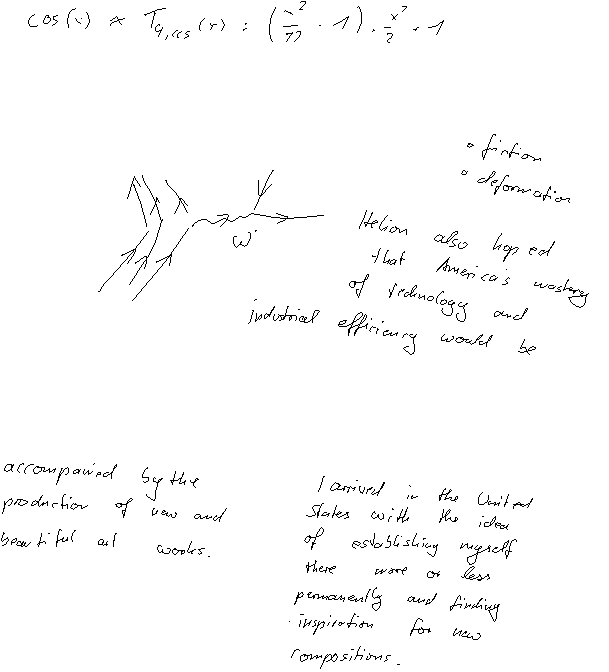 cos(x) ≈ T₄,cos(x) = (x²/12 - 1) · x²/2 + 1
• friction
• deformation
W⁻
Helion also hoped
that America's mastery
of technology and
industrial efficiency would be
accompanied by the
production of new and
beautiful art works.
I arrived in the United
States with the idea
of establishing myself
there more or less
permanently and finding
inspiration for new
compositions.